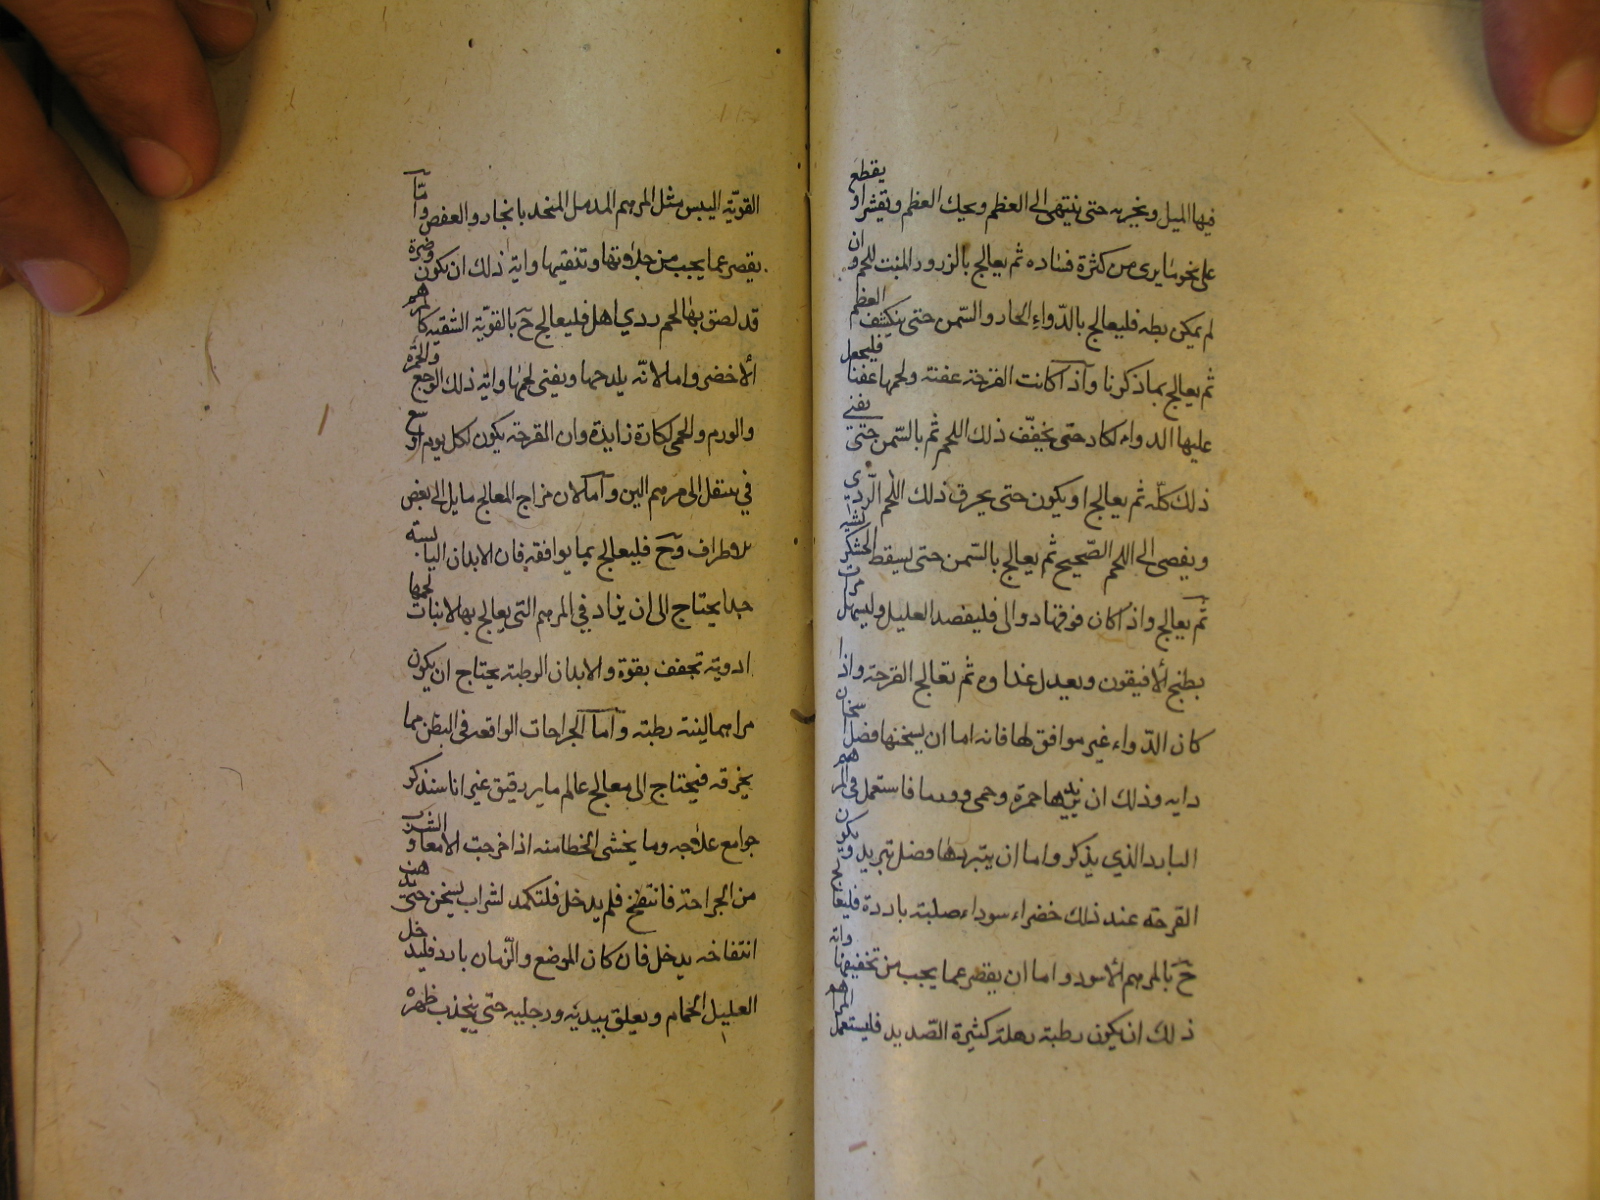 فيها الميل ويخبر به حتى ينتهى الى العظم ويحك العظم وتقشر او يقطع
على نحو ما يرى من كثرة فساده ثم يعالج بالزرور المنبت للحم وان
لم يمكن بطه فليعالج بالدواء الحار والسمن حتى ينكشف العظم
ثم يعالج بما ذكرنا وآذا كانت القرحة عفنة ولحمها عفنا فليجعل
عليها الدواء لكاد حتى يخفف ذلك اللحم ثم بالسمن حتى يفنى
ذلك كله ثم يعالج او يكون حتى يحرق ذلك اللحم الردي
ويفضى الى اللحم الصحيح ثم يعالج بالسمن حتى يسقط الخشكريشه
ثم يعالج واذا كان فوقها دوالى فليفصد العليل وليسهل مرات
بطبخ الأفيقون ويعدل غداوه ثم تعالج القرحة واذا
كان الدواء غير موافق لها فانه اما ان يسخنها فضل اسخان
دايه وذلك ان يزيدها حمرة وحمى وورما فاستعمل فى المرهم
البارد الذي يذكر واما ان يبردها فضل تبريد ويكون
القرحه عند ذلك خضراء سوداء صلبة باردة فليعالج
ح بالمرهم الأسود واما ان يقصر عما يجب من تخفيفها واية
ذلك ان يكون رطبة رهلة كثيرة الصديد فليستعمل المراهم
القوية اليبس مثل المرهم المدمل المتخذ بانجار والعفص واما
يقصر عما يجب من جلاوتها وتنقيتها واية ذلك ان يكون وضرة
قد لصق بها لحم ردي اهل فليعالج ح بالقوية الشقيه كالمرهم
الأخضر واما لانه يلدحها ويفنى لحمها واية ذلك الوجع والحمرة
والورم والحمى لكارة زايدة وان القرحة يكون لكل يوم اوسع
في ينتقل الى مرهم الين وآما كلان مزاج المعالج مايل الى بعض
للاطراف وح فليعالج بما يوافقه فان الابدان اليابسة
جدا يحتاج الى ان يزاد في المرهم التى يعالج بها لانبات لحمها
ادوية تجفف بقوة والابدان الرطبة يحتاج ان يكون
مراهما لينة رطبة وآما الجراحات الواقعه فى البطن مما
يخرقه فيحتاج الى معالج عالم ماير رقيق غير انا سنذكر
جوامع علاجه وما يخشى الخطا منه اذا خرجت الامعا والثرب
من الجراحة فانتفخ فلم يدخل فلتكمد لشراب يسخن حتى يذهب
انتفاخه يدخل فان كان الموضع والزمان بارد فليدخل
العليل الحمام ويعلق بيديه ورجليه حتى ينجذب ظهره